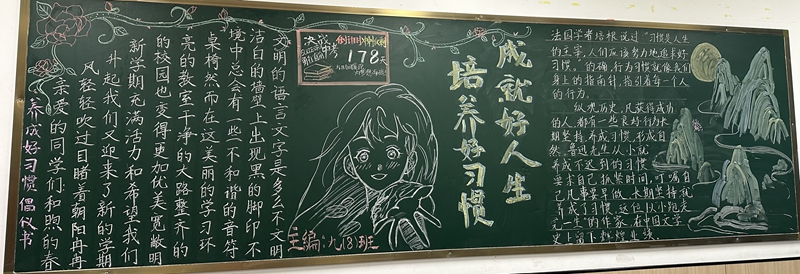 养成好习惯倡议书
亲爱的同学们:和煦的春
风轻轻吹过目睹着朝阳冉冉
升起我们又迎来了新的学期
新学期充满活力和希望我们
的校园也变得更加优美宽敞明
亮的教室干净的大路整齐的
桌椅然而在这美丽的学习环
境中总会有一些不和谐的音符
洁白的墙壁上出现黑的脚印不
文明的语言文字是多么不文明
决战
中考
178天
主编:九(8)班
培养好习惯
成就好人生
法国学者培根说过"习惯是人生
的主宰,人们应该努力地追求好
习惯。"的确,行为习惯就像我们
身上的指南针,指引着每一个人
的行为。
纵观历史,凡获得成功
的人,都有一些良好行为长
期坚持,养成习惯,形成自
然。鲁迅先生从小就
养成不迟到的习惯
要求自己抓紧时间,叮嘱自
己凡事要早做,长期坚持就
养成了习惯。这位从小抓
文学上